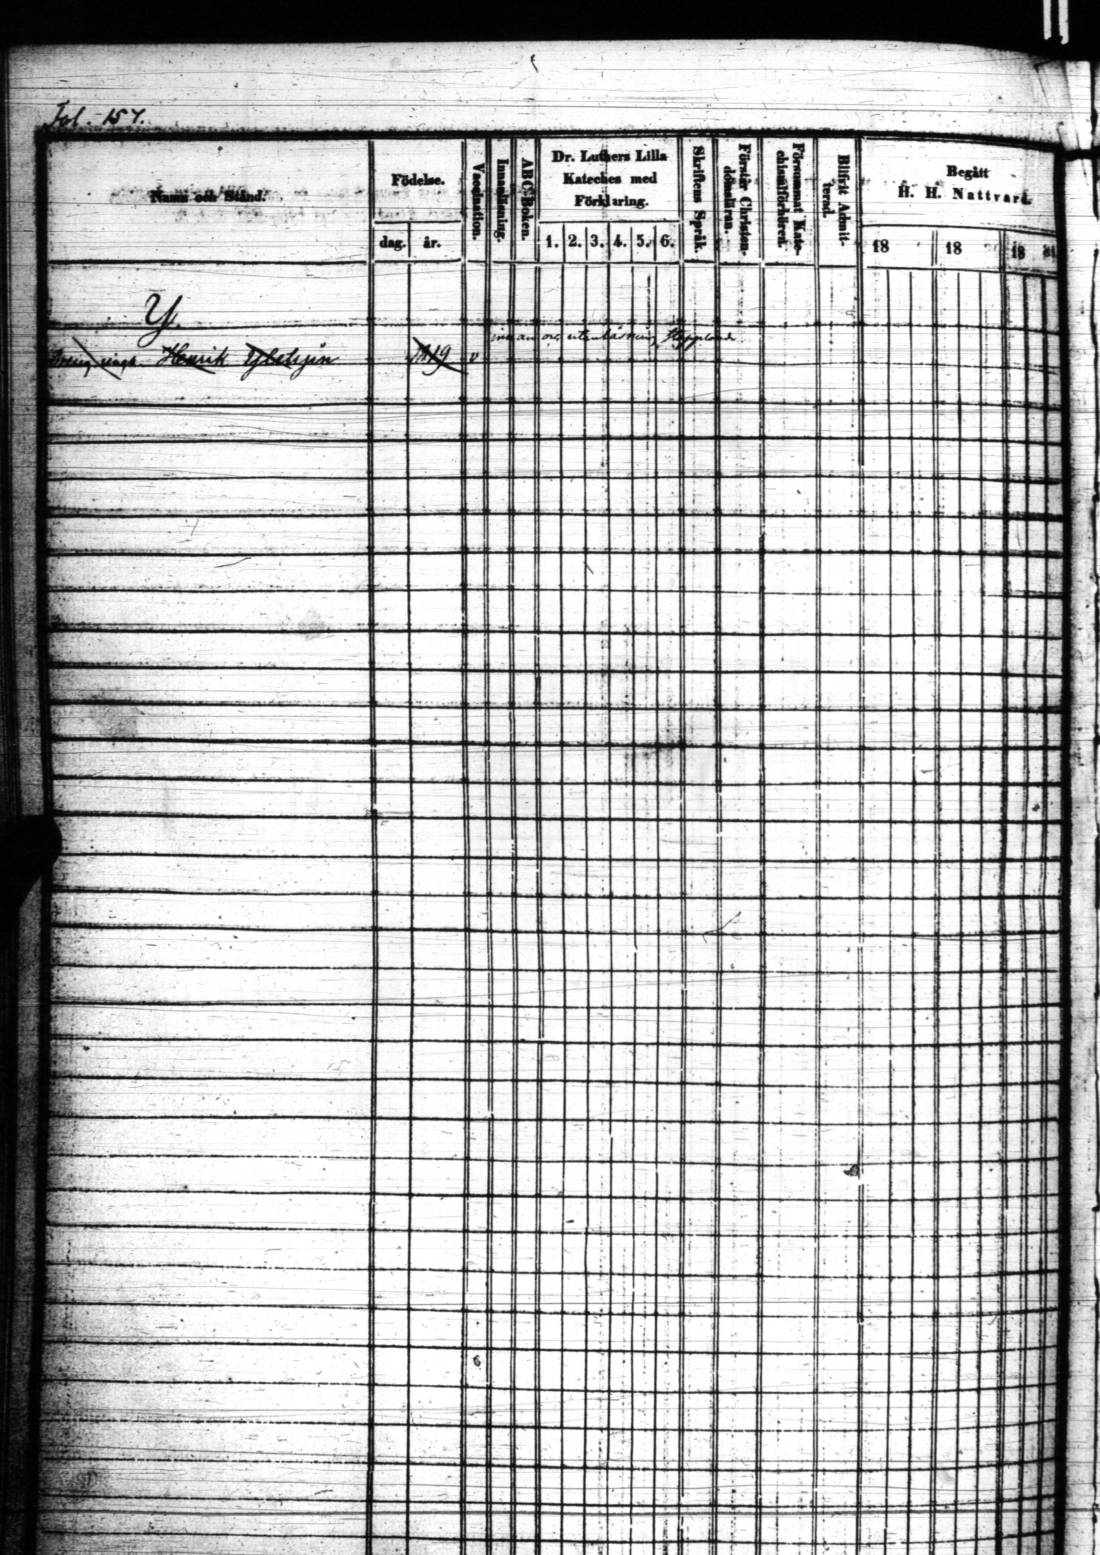 Fol. 157.
Namn och Stånd.
Födelse.
dag. år.
Vaccination.
Innanläsning.
ABC-Boken.
Dr. Luthers Lilla
Kateches med
Förklaring.
1. 2. 3. 4. 5. 6.
Skriftens Språk.
Förstår Christen-
domsläran.
Försummat Kate-
chismiförhören.
Blifvit Admit-
terad.
Begått
H. H. Nattvard.
18 18 18
Y.
Henrik